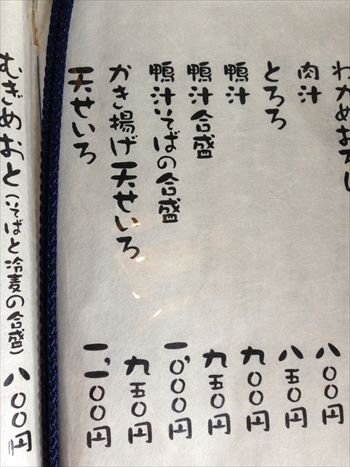 わかめおろし
肉汁 八〇〇円
とろろ 八五〇円
鴨汁 九〇〇円
鴨汁合盛 九五〇円
鴨汁そばの合盛 一、〇〇〇円
かき揚げ天せいろ 九五〇円
天せいろ 一、一〇〇円
むぎめおと(そばと冷麦の合盛) 八〇〇円